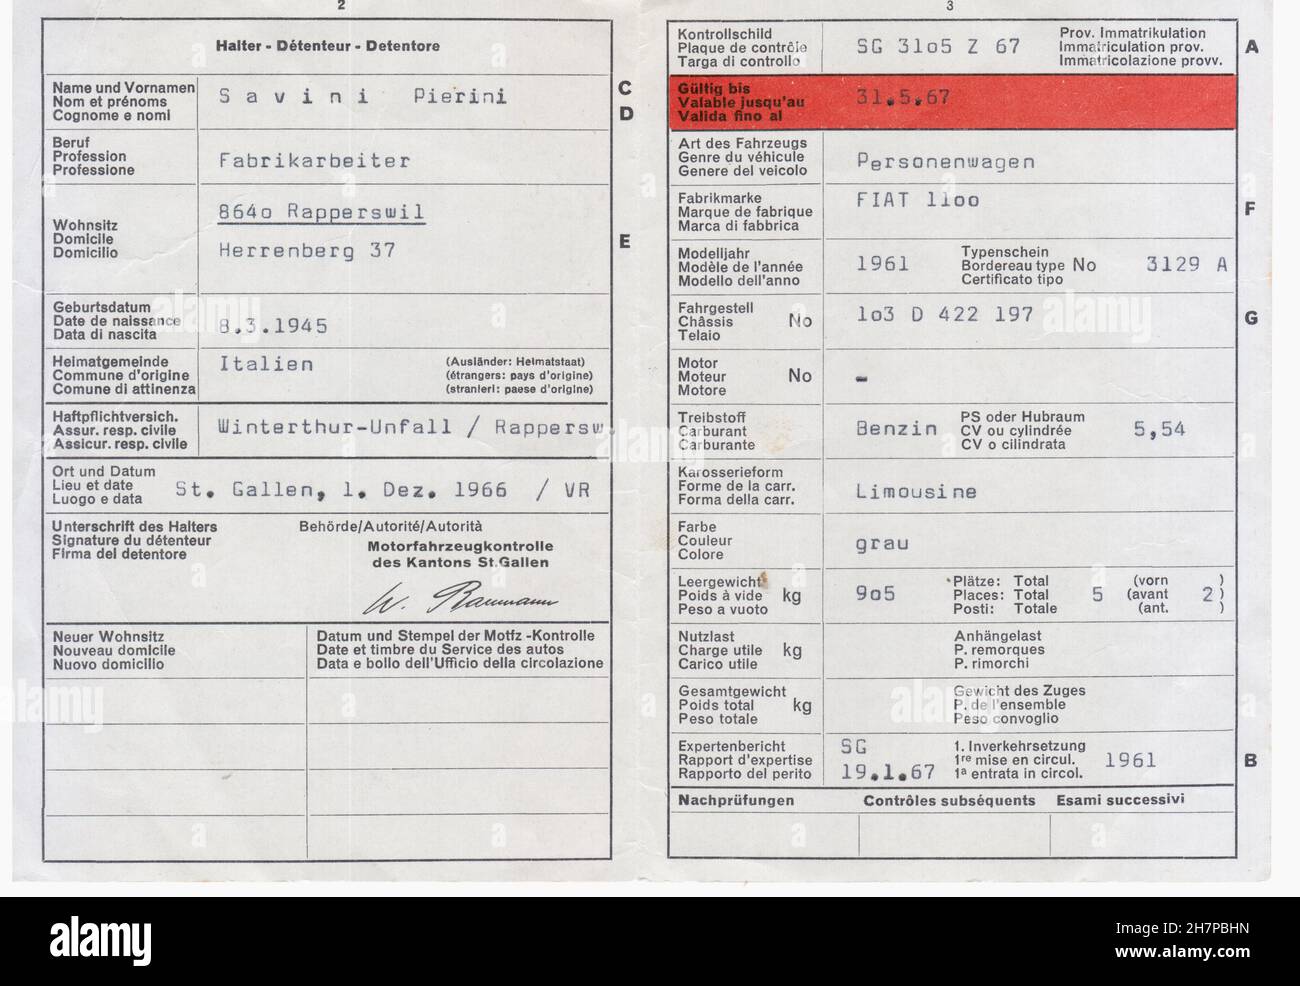 2
Halter - Détenteur - Detentore
Name und Vornamen
Nom et prénoms
Cognome e nomi
Savini Pierini
C
D
Beruf
Profession
Professione
Fabrikarbeiter
Wohnsitz
Domicile
Domicilio
864o Rapperswil
Herrenberg 37
E
Geburtsdatum
Date de naissance
Data di nascita
8.3.1945
Heimatgemeinde
Commune d'origine
Comune di attinenza
Italien
(Ausländer: Heimatstaat)
(étrangers: pays d'origine)
(stranieri: paese d'origine)
Haftpflichtversich.
Assur. resp. civile
Assicur. resp. civile
Winterthur-Unfall / Rappersw.
Ort und Datum
Lieu et date
Luogo e data
St. Gallen, 1. Dez. 1966 / VR
Unterschrift des Halters
Signature du détenteur
Firma del detentore
Behörde/Autorité/Autorità
Motorfahrzeugkontrolle
des Kantons St.Gallen
W. Baumann
Neuer Wohnsitz
Nouveau domicile
Nuovo domicilio
Datum und Stempel der Motfz -Kontrolle
Date et timbre du Service des autos
Data e bollo dell'Ufficio della circolazione
3
Kontrollschild
Plaque de contrôle
Targa di controllo
SG 31o5 Z 67
Prov. Immatrikulation
Immatriculation prov.
Immatricolazione provv.
A
Gültig bis
Valable jusqu'au
Valida fino al
31.5.67
Art des Fahrzeugs
Genre du véhicule
Genere del veicolo
Personenwagen
Fabrikmarke
Marque de fabrique
Marca di fabbrica
FIAT 11oo
F
Modelljahr
Modèle de l'année
Modello dell'anno
1961
Typenschein
Bordereau type No
Certificato tipo
3129 A
Fahrgestell
Châssis No
Telaio
1o3 D 422 197
G
Motor
Moteur No
Motore
-
Treibstoff
Carburant
Carburante
Benzin
PS oder Hubraum
CV ou cylindrée
CV o cilindrata
5,54
Karosserieform
Forme de la carr.
Forma della carr.
Limousine
Farbe
Couleur
Colore
grau
Leergewicht
Poids à vide kg
Peso a vuoto
9o5
Plätze: Total
Places: Total
Posti: Totale
5
(vorn )
(avant 2 )
(ant. )
Nutzlast
Charge utile kg
Carico utile
Anhängelast
P. remorques
P. rimorchi
Gesamtgewicht
Poids total kg
Peso totale
Gewicht des Zuges
P. de l'ensemble
Peso convoglio
Expertenbericht
Rapport d'expertise
Rapporto del perito
SG
19.1.67
1. Inverkehrsetzung
1re mise en circul.
1a entrata in circol.
1961
B
Nachprüfungen Contrôles subséquents Esami successivi
alamy
alamy
Image ID: 2H7PBHN
www.alamy.com